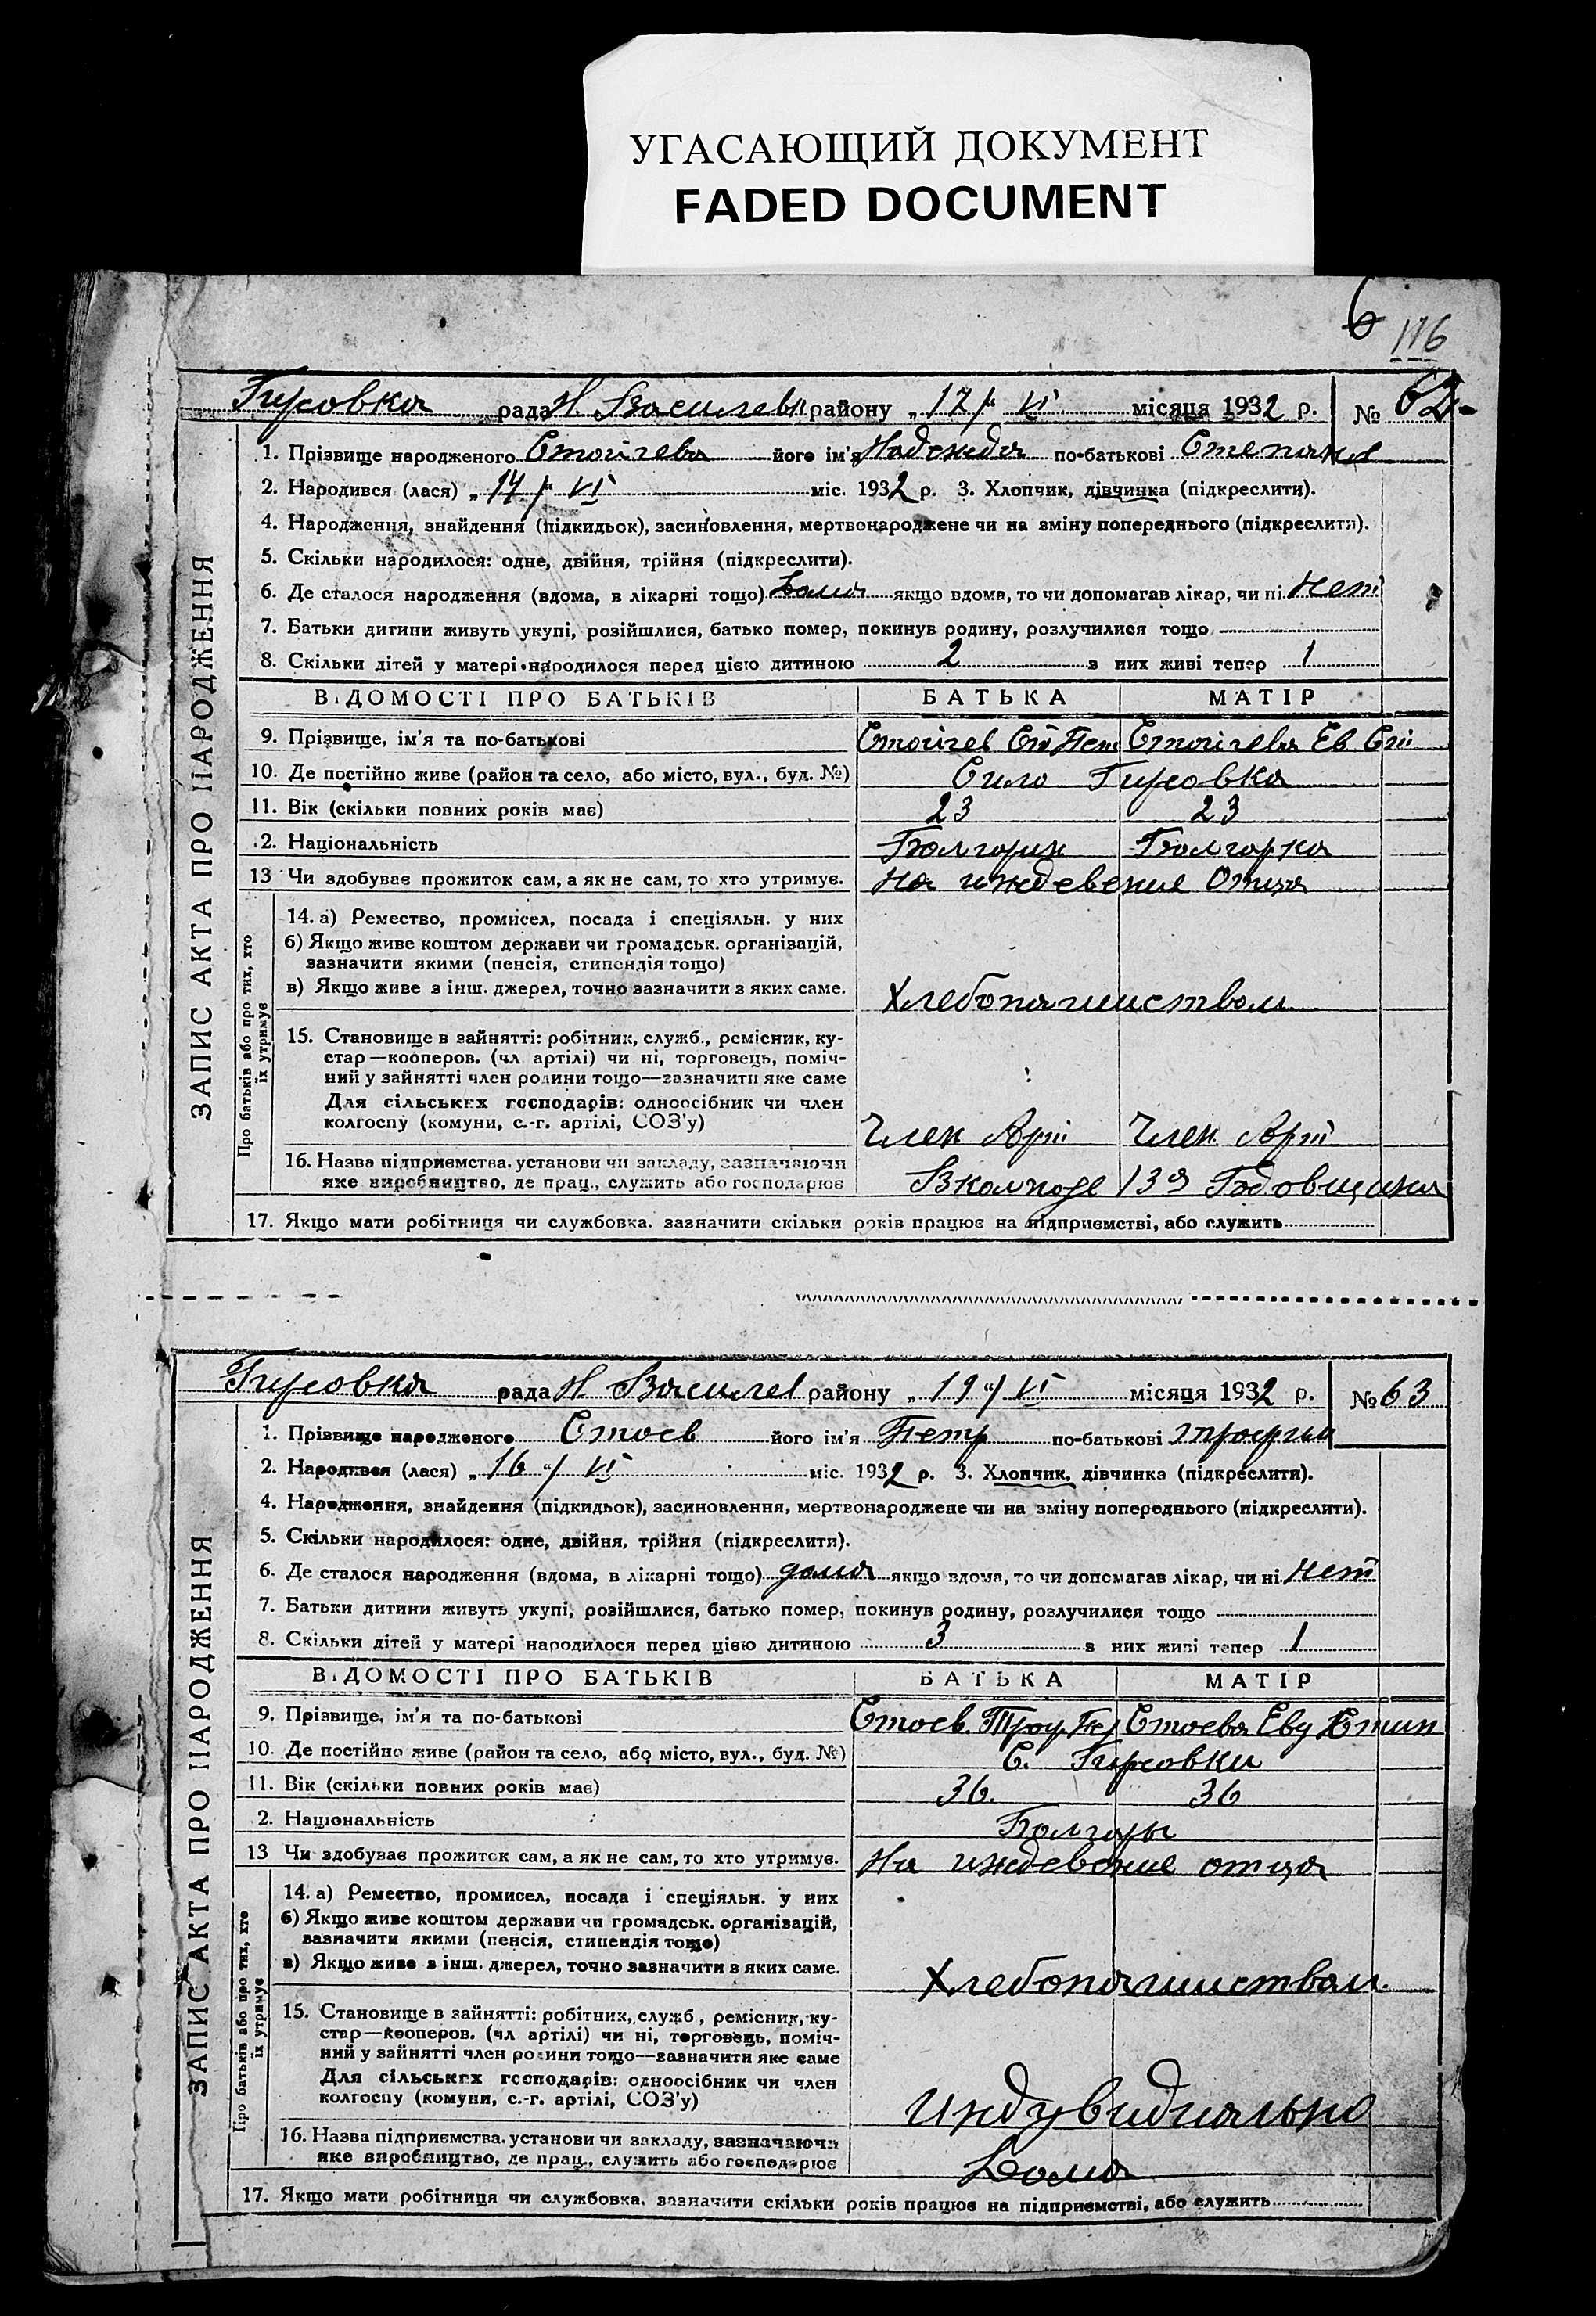 УГАСАЮЩИЙ ДОКУМЕНТ
FADED DOCUMENT
6 116
Гирсовка рада Н Василев району „17/“ VI місяця 1932 р. № 62
1. Прізвище народженого Стоїчева його ім'я Надежда по-батькові Степанов
2. Народився (лася) „14/“ VI міс. 1932 р. 3. Хлопчик, дівчинка (підкреслити).
4. Народження, знайдення (підкидьок), засиновлення, мертвонароджене чи на зміну попереднього (підкреслити).
5. Скільки народилося: одне, двійня, трійня (підкреслити).
6. Де сталося народження (вдома, в лікарні тощо) Дома якщо вдома, то чи допомагав лікар, чи ні Нет
7. Батьки дитини живуть укупі, розійшлися, батько помер, покинув родину, розлучилися тощо
8. Скільки дітей у матері народилося перед цією дитиною 2 з них живі тепер 1
ВІДОМОСТІ ПРО БАТЬКІВ БАТЬКА МАТІР
9. Прізвище, ім'я та по-батькові Стоїчев Ст Пет Стоїчева Ев
10. Де постійно живе (район та село, або місто, вул., буд. №) Село Гирсовка
11. Вік (скільки повних років має) 23 23
2. Національність Болгарин Болгарка
13 Чи здобуває прожиток сам, а як не сам, то хто утримує. На иждевение Отца
ЗАПИС АКТА ПРО НАРОДЖЕННЯ
Про батьків або про тих, хто їх утримує
14. а) Ремество, промисел, посада і спеціяльн. у них
б) Якщо живе коштом держави чи громадськ. організацій,
зазначити якими (пенсія, стипендія тощо)
в) Якщо живе з інш. джерел, точно зазначити з яких саме. Хлебопашиством
15. Становище в зайнятті: робітник, служб., ремісник, ку-
стар—кооперов. (чл артілі) чи ні, торговець, поміч-
ний у зайнятті член родини тощо—зазначити яке саме
Для сільських господарів: одноосібник чи член
колгоспу (комуни, с.-г. артілі, СОЗ'у) Член Арт Член Арт
16. Назва підприємства, установи чи закладу, зазначаючи
яке виробництво, де прац., служить або господарює 13
17. Якщо мати робітниця чи службовка, зазначити скільки років працює на підприємстві, або служить
Гирсовка рада Н Василев району „19“/ VI місяця 1932 р. № 63
1. Прізвище народженого Стоев його ім'я Петр по-батькові Трофим
2. Народився (лася) „16“/ VI міс. 1932 р. 3. Хлопчик, дівчинка (підкреслити).
4. Народження, знайдення (підкидьок), засиновлення, мертвонароджене чи на зміну попереднього (підкреслити).
5. Скільки народилося: одне, двійня, трійня (підкреслити).
6. Де сталося народження (вдома, в лікарні тощо) дома якщо вдома, то чи допомагав лікар, чи ні Нет
7. Батьки дитини живуть укупі, розійшлися, батько помер, покинув родину, розлучилися тощо
8. Скільки дітей у матері народилося перед цією дитиною 3 з них живі тепер 1
ВІДОМОСТІ ПРО БАТЬКІВ БАТЬКА МАТІР
9. Прізвище, ім'я та по-батькові Стоев Троф Стоева Евд
10. Де постійно живе (район та село, або місто, вул., буд. №) С. Гирсовки
11. Вік (скільки повних років має) 36. 36
2. Національність Болгары
13 Чи здобуває прожиток сам, а як не сам, то хто утримує. На иждевение отца
ЗАПИС АКТА ПРО НАРОДЖЕННЯ
Про батьків або про тих, хто їх утримує
14. а) Ремество, промисел, посада і спеціяльн. у них
б) Якщо живе коштом держави чи громадськ. організацій,
зазначити якими (пенсія, стипендія тощо)
в) Якщо живе з інш. джерел, точно зазначити з яких саме. Хлебопашиством.
15. Становище в зайнятті: робітник, служб., ремісник, ку-
стар—кооперов. (чл артілі) чи ні, торговець, поміч-
ний у зайнятті член родини тощо—зазначити яке саме
Для сільських господарів: одноосібник чи член
колгоспу (комуни, с.-г. артілі, СОЗ'у) Индувидиально
16. Назва підприємства, установи чи закладу, зазначаючи
яке виробництво, де прац., служить або господарює Дома
17. Якщо мати робітниця чи службовка, зазначити скільки років працює на підприємстві, або служить